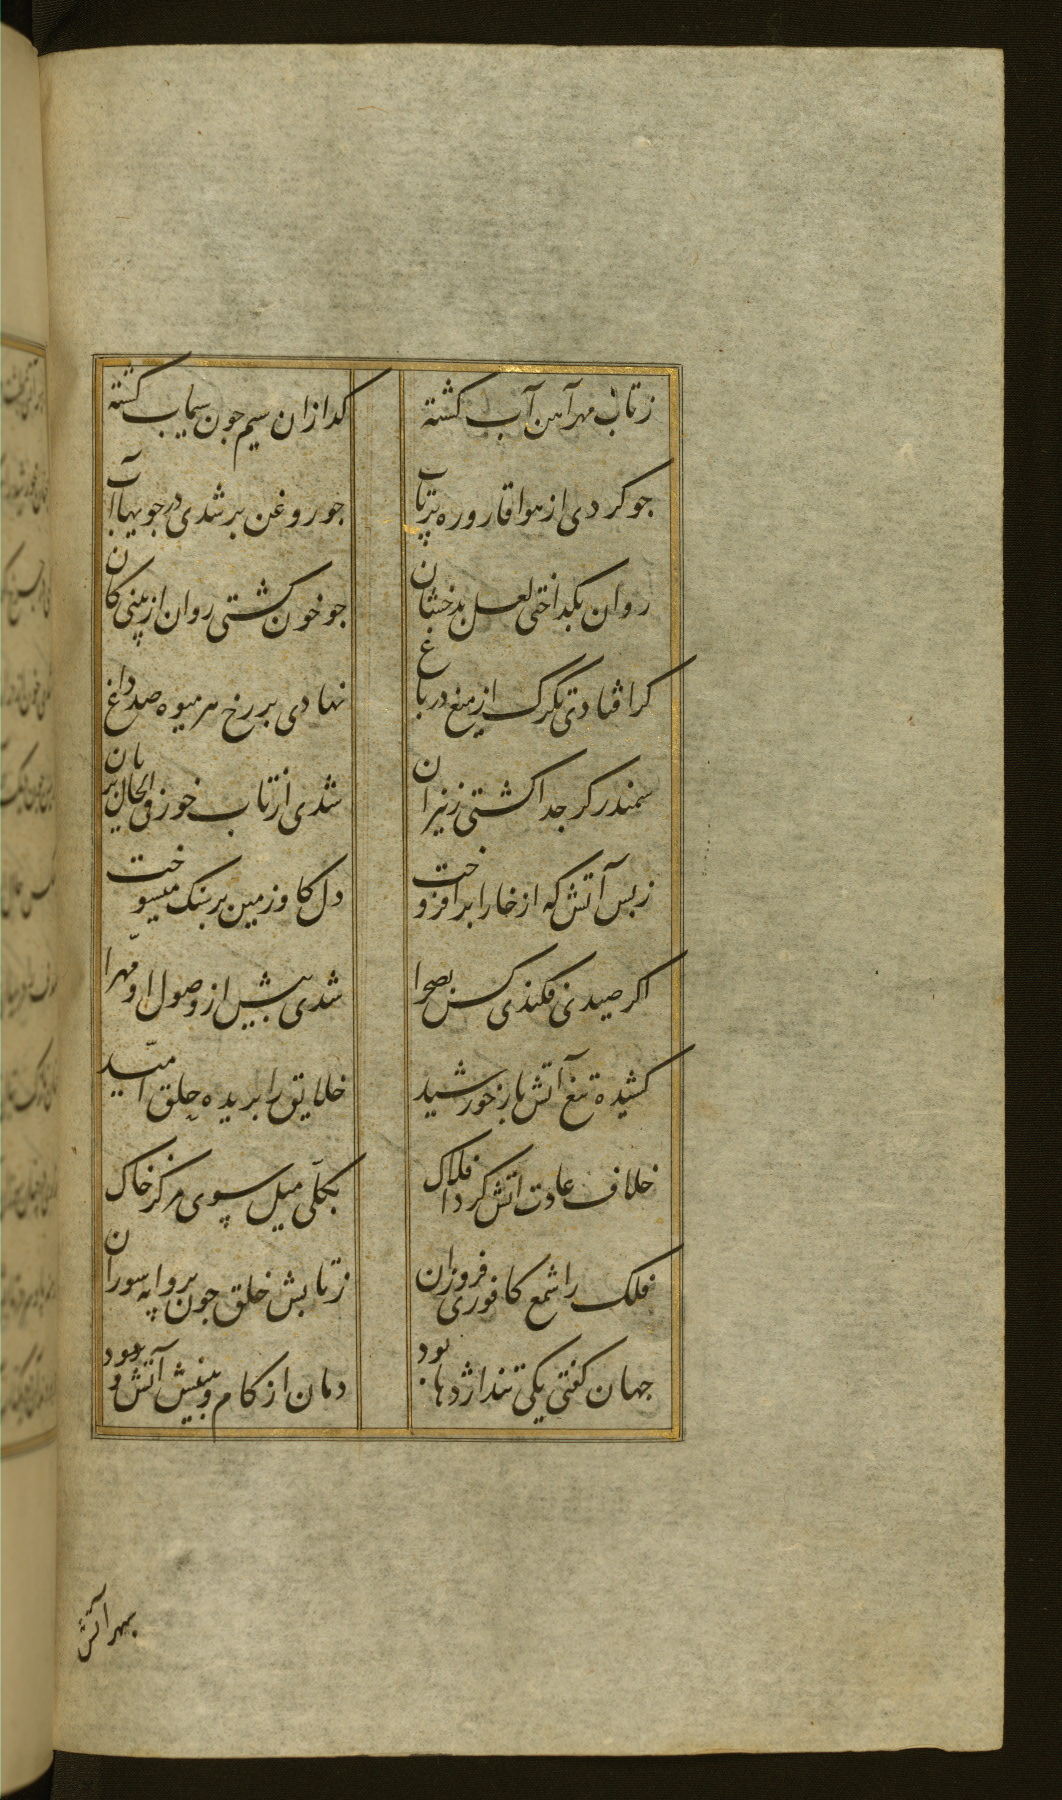 ز تاب مهر آهن آب کشته
کدازان سیم جون سیماب کشته
جو کردی از هوا قاروره پرتاب
جو روغن بر شدی در جویها آب
روان بکداختی لعل بدخشان
جو خون کشتی روان از بینی کان
کر افتادی تکرک از میغ در باغ
نهادی بر رخ هر میوه صد داغ
سمندر کر جدا کشتی ز نیران
شدی از تاب خور فی الحال بریان
ز بس آتش که از خارا برافروخت
دل کاو زمین بر سنک میسوخت
اکر صیدی فکندی کس بصحرا
شدی پیش از وصول او مهرا
کشیده تیغ آتش بار خورشید
خلایق را بریده حلق امید
خلاف عادت اتش کرد افلاک
بکلی میل سوی مرکز خاک
فلک را شمع کافوری فروزان
ز تابش خلق جون پروانه سوزان
جهان کفتی یکی تند اژدها بود
دمان از کام و بینیش آتش و دود
سهر آتش